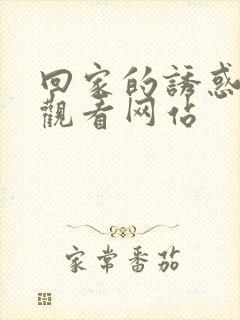 回家的誘惑
觀看网佔
家常番茄